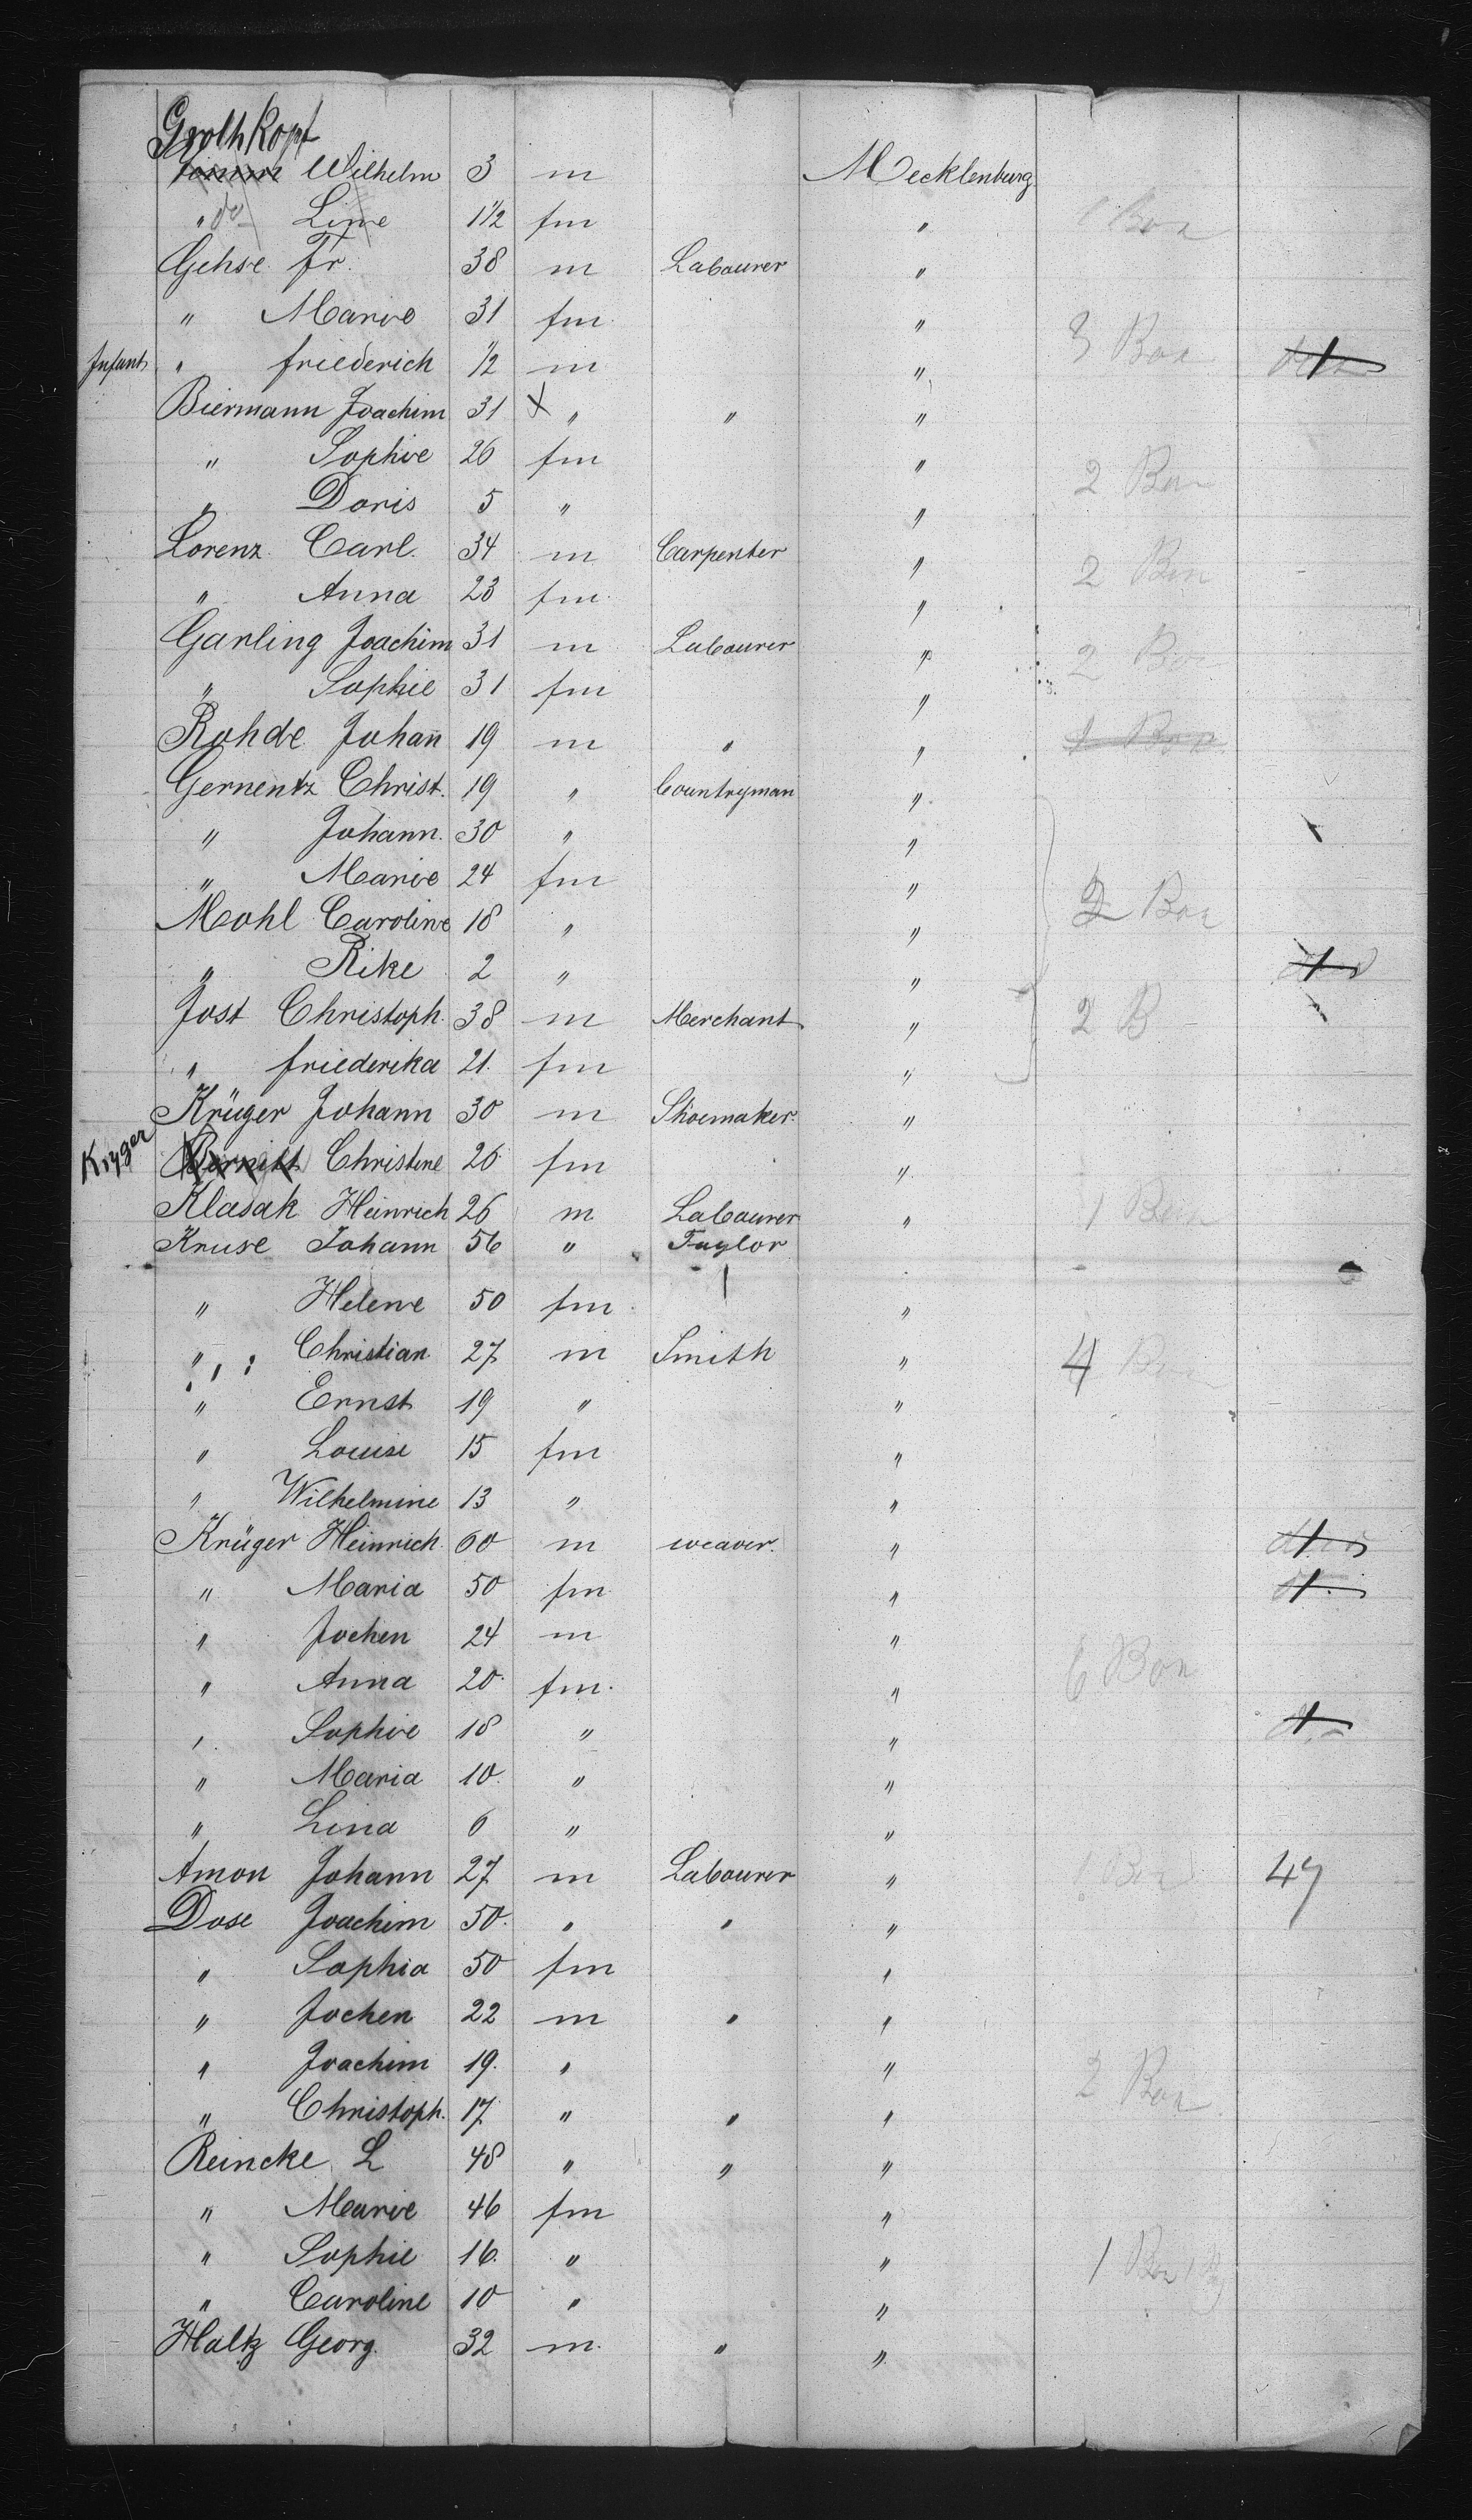 Grothkopf
Wilhelm 3 m Mecklenburg
" do Line 1 1/2 fm " 1 Box
Gehse Fr. 38 m Labourer "
" Marie 31 fm "
Infant " friederich 1/2 m " 3 Box
Biermann Joachim 31 X " " "
" Sophie 26 fm "
" Doris 5 " " 2 Box
Lorenz Carl. 34 m Carpenter "
" Anna 23 fm " 2 Box
Garling Joachim 31 m Labourer "
" Sophie 31 fm " 2 Box
Rohde Johan̄ 19 m " " 1 Box
Gernentz Christ. 19 " Countryman "
" Johann. 30 " "
" Marie 24 fm "
Mohl Caroline 18 " " 2 Box
" Rike 2 " "
Jost Christoph. 38 m Merchant " 2 B
" friederika 21. fm "
Krüger Johann 30 m Shoemaker. "
Kryger Bernitt Christine 26 fm "
Klasak Heinrich 26 m Labourer " 1 Box
Kruse Johann 56 " Taylor
" Helene 50 fm "
" Christian 27 m Smith " 4 Box
" Ernst 19 " "
" Louise 15 fm "
" Wilhelmine 13 " "
Krüger Heinrich. 60 m weaver. "
" Maria 50 fm "
" Jochen 24 m "
" Anna 20 fm. " 6 Box
" Sophie 18 " "
" Maria 10. " "
" Lina 6 " "
Amon Johann 27 m Labourer " 1 Box 47
Dose Joachim 50. " " "
" Sophia 50 fm "
" Jochen 22 m " "
" Joachim 19. " "
" Christoph. 17 " " " 2 Box
Reincke L 48 " " "
" Marie 46 fm "
" Sophie 16. " " 1 Box
" Caroline 10 " "
Haltz Georg. 32 m. " "